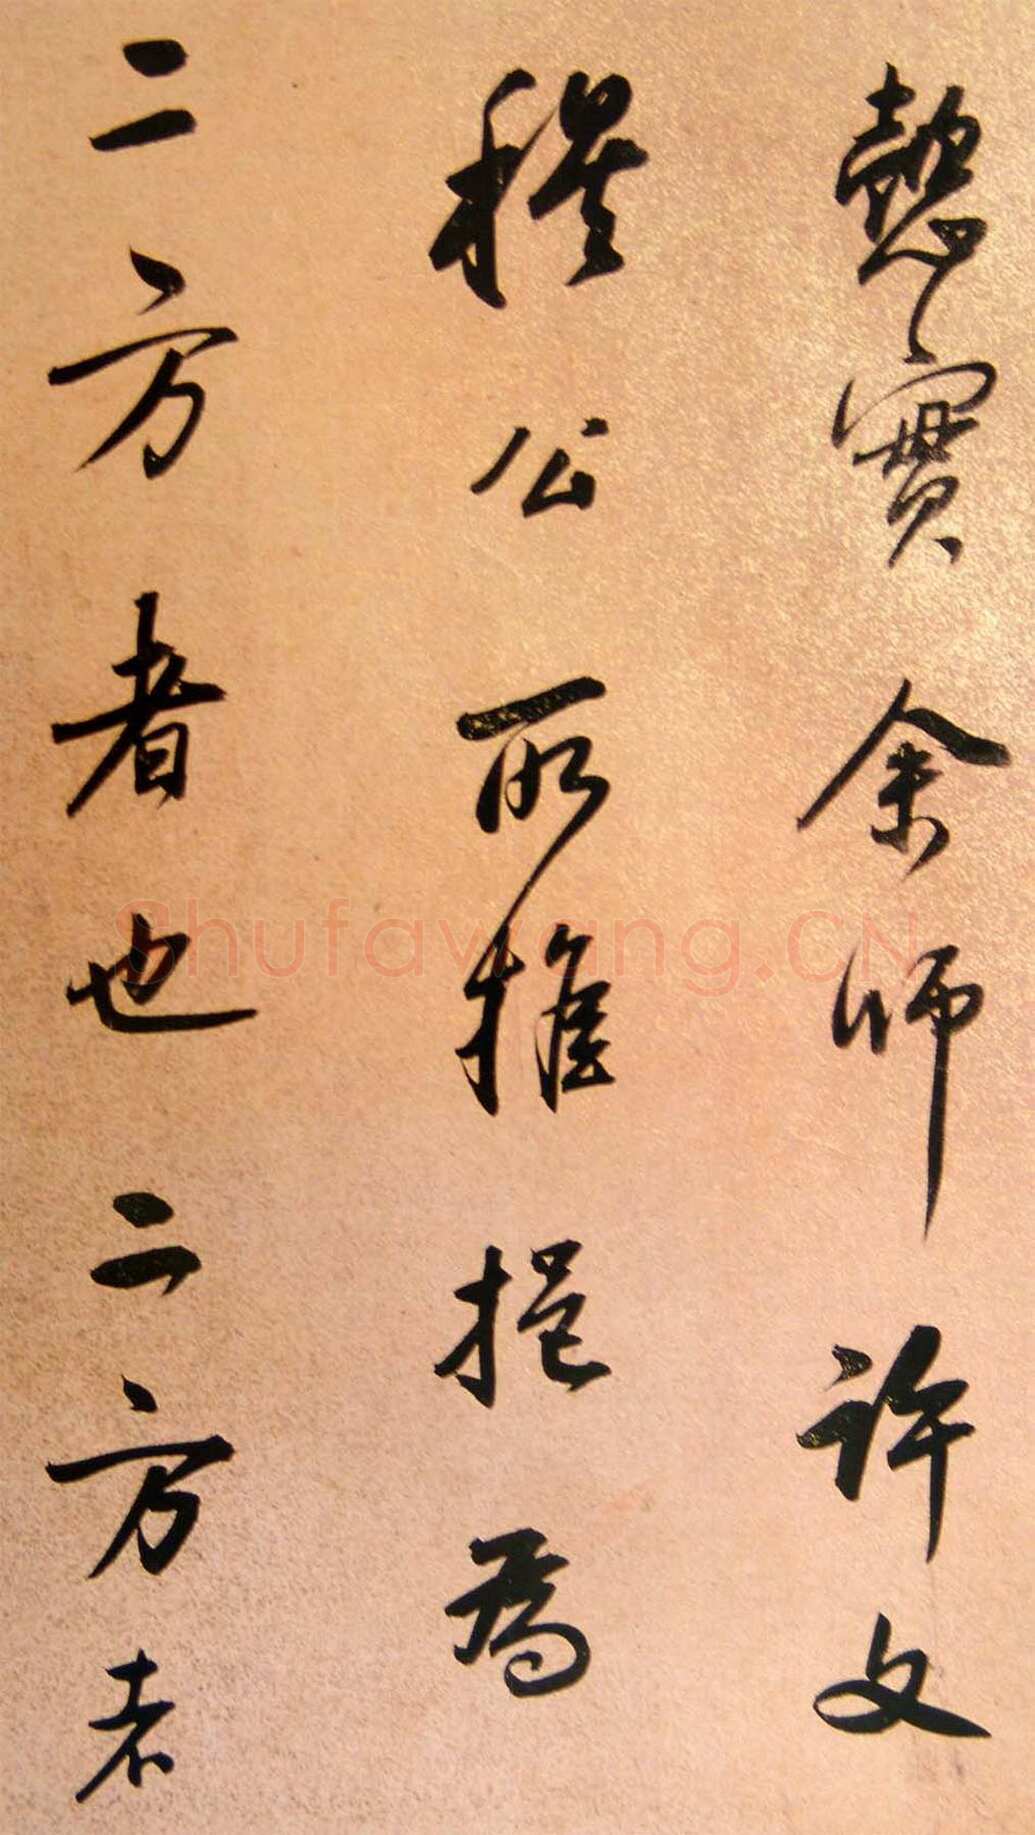 懿實余師許文
穆公所推挹為
二方者也二方者
Shufawang.CN